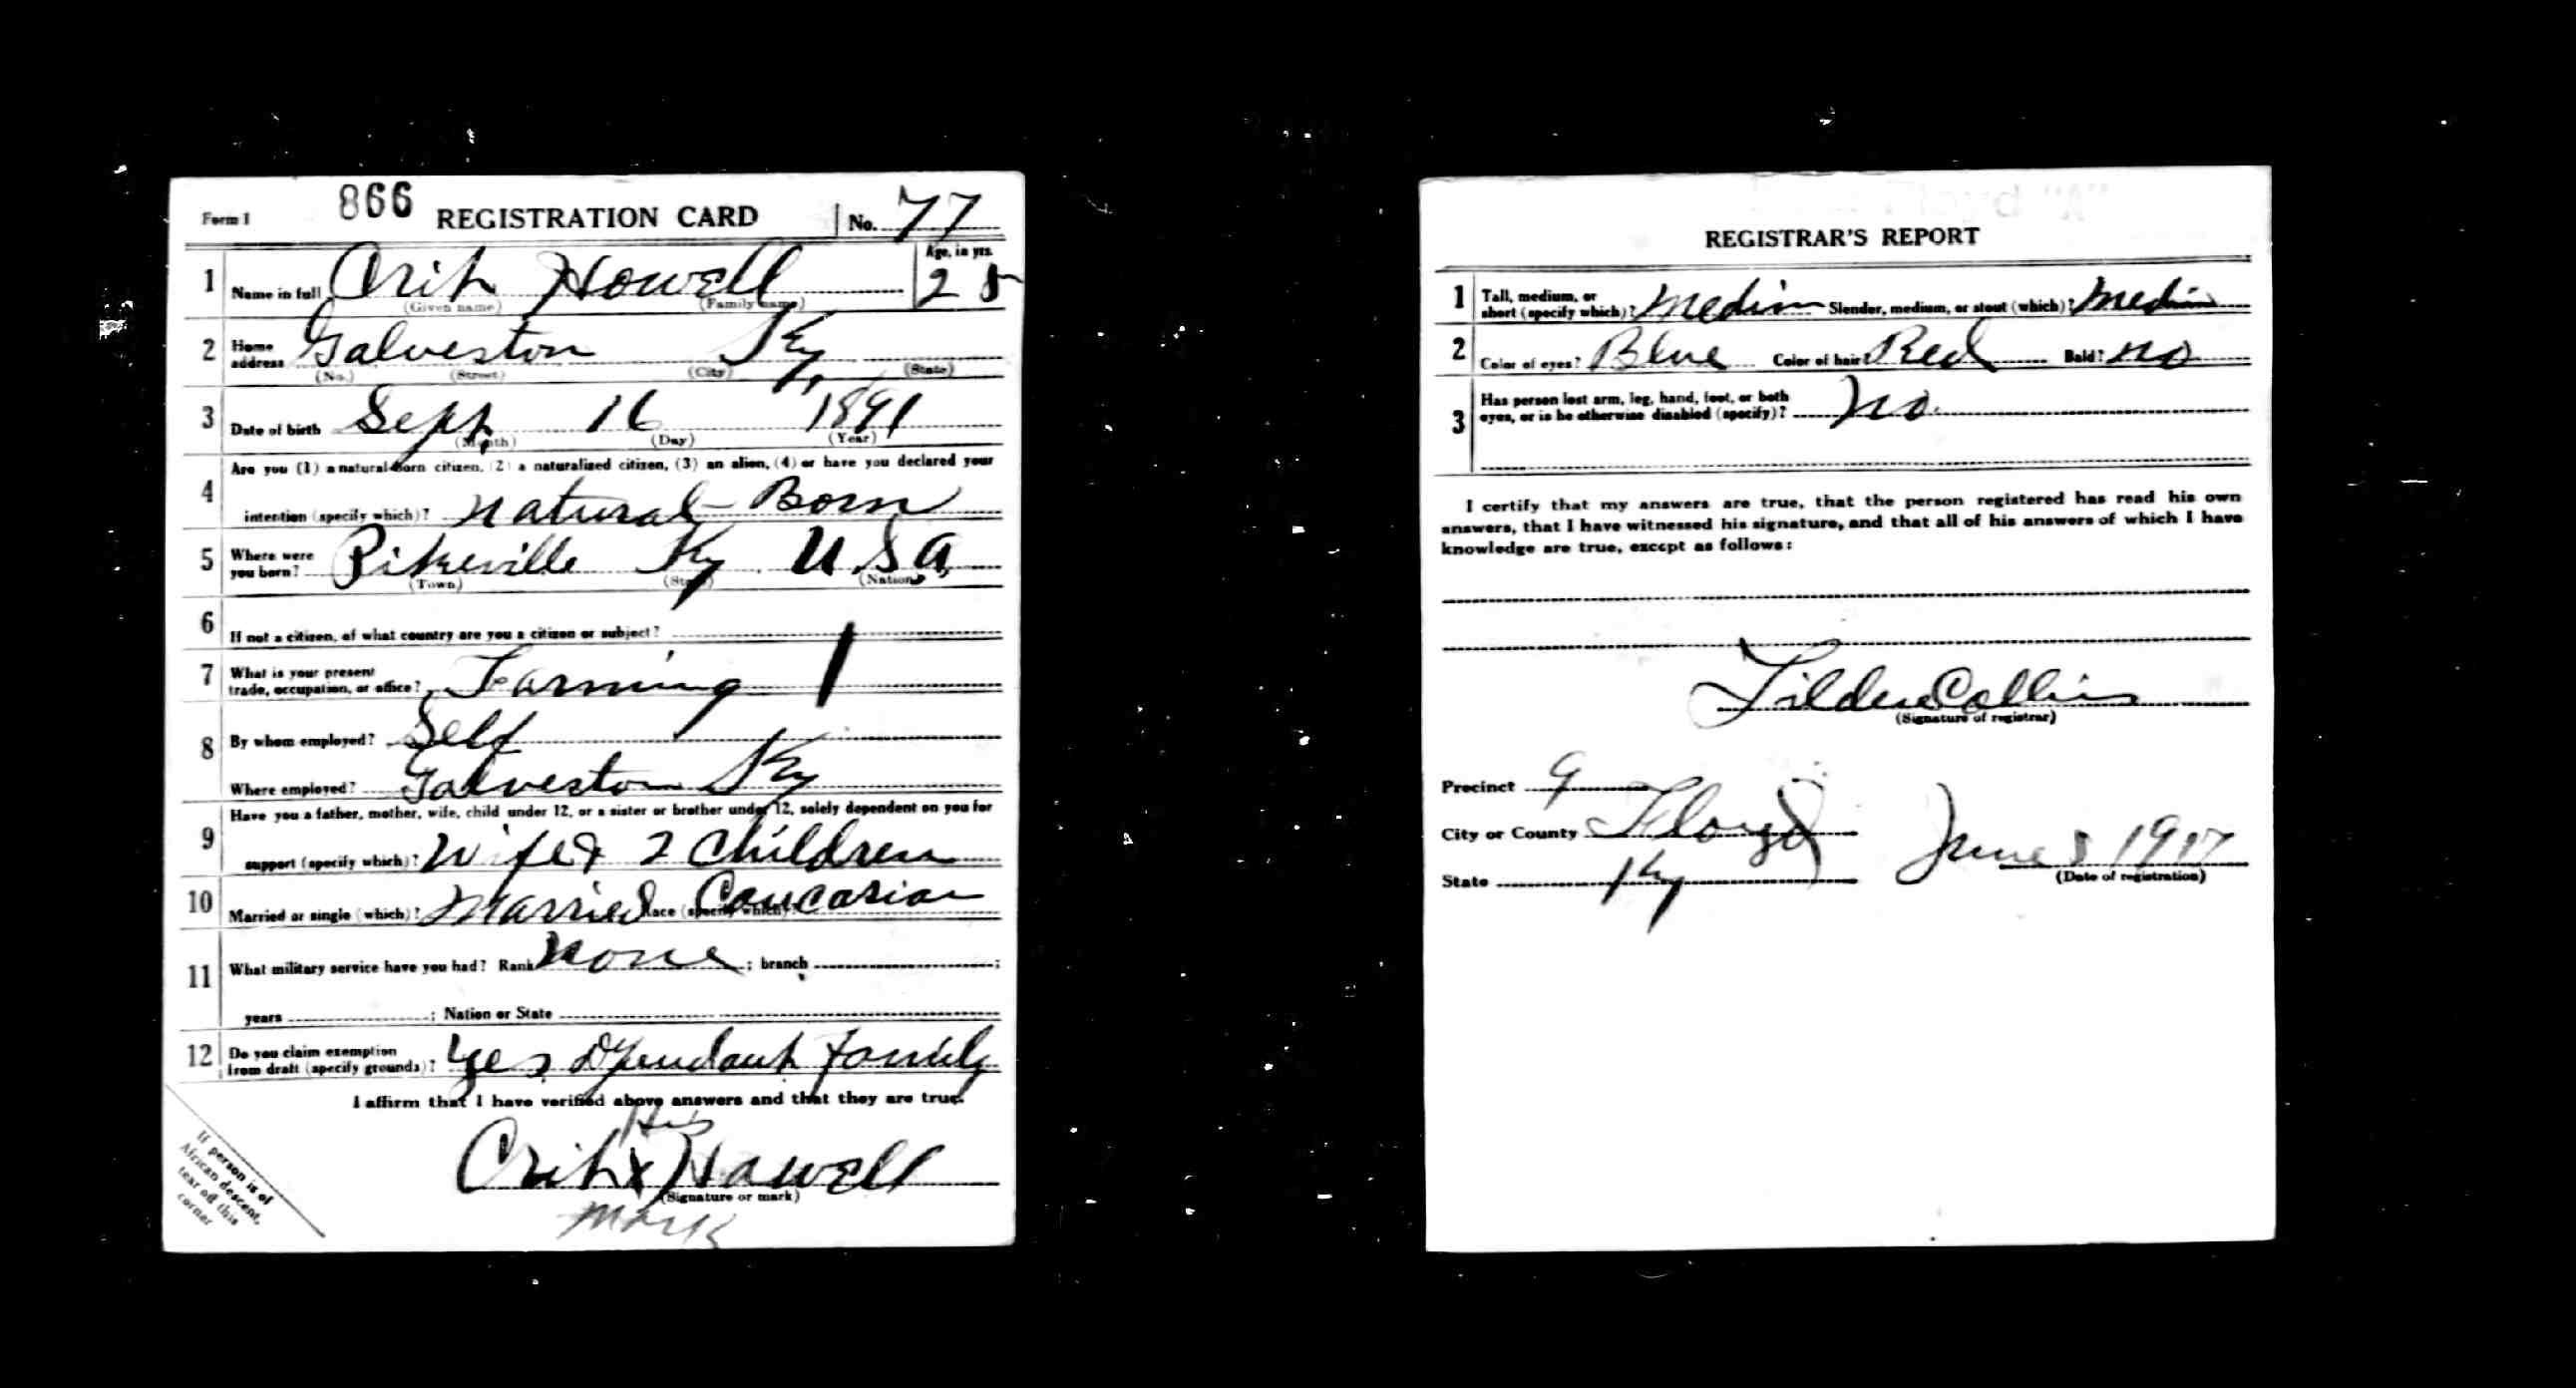 866
Form 1 REGISTRATION CARD No. 77
1 Name in full Crit Howell Age, in yrs. 25
(Given name) (Family name)
2 Home address Galveston Ky,
(No.) (Street) (City) (State)
3 Date of birth Sept. 16 1891
(Month) (Day) (Year)
Are you (1) a natural-born citizen, (2) a naturalized citizen, (3) an alien, (4) or have you declared your
4 intention (specify which)? Natural-Born
5 Where were you born? Pikeville Ky. U.S.A.
(Town) (State) (Nation)
6 If not a citizen, of what country are you a citizen or subject?
7 What is your present trade, occupation, or office? Farming
8 By whom employed? Self
Where employed? Galveston Ky
Have you a father, mother, wife, child under 12, or a sister or brother under 12, solely dependent on you for
9 support (specify which)? Wife & 2 children
10 Married or single (which)? Married Race (specify which)? Caucasian
11 What military service have you had? Rank None ; branch ;
years ; Nation or State
12 Do you claim exemption from draft (specify grounds)? Yes Dependant family
I affirm that I have verified above answers and that they are true.
His
Crit x Howell
(Signature or mark)
mark
If person is of
African descent,
tear off this
corner
REGISTRAR'S REPORT
1 Tall, medium, or short (specify which)? Medim Slender, medium, or stout (which)? Medim
2 Color of eyes? Blue Color of hair? Red Bald? no
3 Has person lost arm, leg, hand, foot, or both eyes, or is he otherwise disabled (specify)? No.
I certify that my answers are true, that the person registered has read his own
answers, that I have witnessed his signature, and that all of his answers of which I have
knowledge are true, except as follows:
Tilden Collins
(Signature of registrar)
Precinct 9
City or County Floyd
State Ky
June 5 1917
(Date of registration)